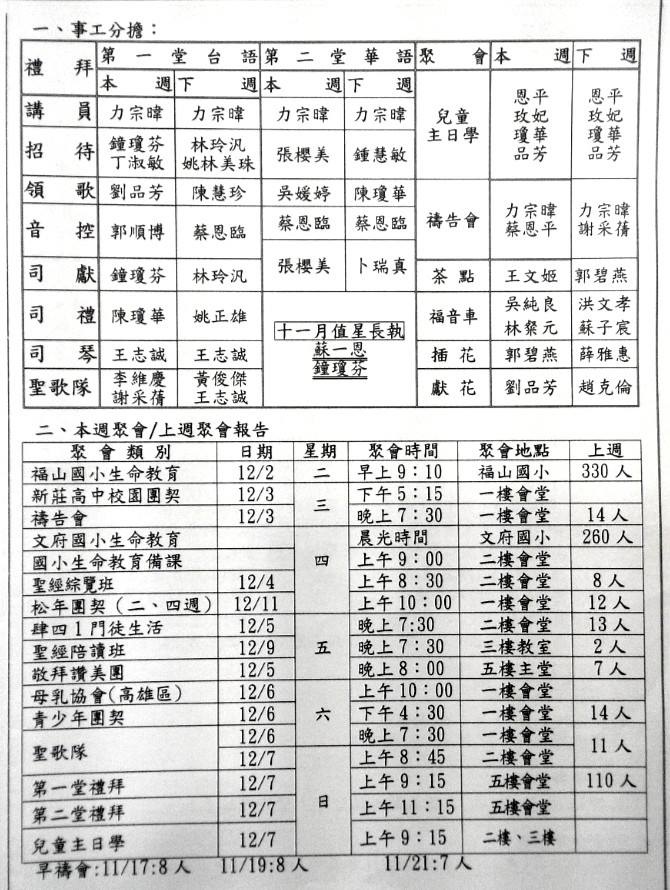 一、事工分擔：
禮拜 第一堂台語 第二堂華語 聚會 本週 下週
本週 下週 本週 下週
講員 力宗暐 力宗暐 力宗暐 力宗暐 兒童主日學 恩平 玫妃 瓊華 品芳 恩平 玫妃 瓊華 品芳
招待 鐘瓊芬 丁淑敏 林玲汎 姚林美珠 張櫻美 鍾慧敏
領歌 劉品芳 陳慧珍 吳媛婷 陳瓊華 禱告會 力宗暐 蔡恩平 力宗暐 謝采蒨
音控 郭順博 蔡恩臨 蔡恩臨 蔡恩臨
司獻 鐘瓊芬 林玲汎 張櫻美 卜瑞真 茶點 王文姬 郭碧燕
司禮 陳瓊華 姚正雄 十一月值星長執 蘇一恩 鐘瓊芬 福音車 吳純良 林粲元 洪文孝 蘇子宸
司琴 王志誠 王志誠 插花 郭碧燕 薛雅惠
聖歌隊 李維慶 謝采蒨 黃俊傑 王志誠 獻花 劉品芳 趙克倫
二、本週聚會/上週聚會報告
聚會類別 日期 星期 聚會時間 聚會地點 上週
福山國小生命教育 12/2 二 早上9：10 福山國小 330人
新莊高中校園團契 12/3 三 下午5：15 一樓會堂
禱告會 12/3 晚上7：30 一樓會堂 14人
文府國小生命教育 四 晨光時間 文府國小 260人
國小生命教育備課 上午9：00 二樓會堂
聖經綜覽班 12/4 上午8：30 二樓會堂 8人
松年團契（二、四週） 12/11 上午10：00 一樓會堂 12人
肆四1門徒生活 12/5 五 晚上7:30 二樓會堂 13人
聖經陪讀班 12/9 晚上7：30 三樓教室 2人
敬拜讚美團 12/5 晚上8：00 五樓主堂 7人
母乳協會(高雄區) 12/6 六 上午10：00 一樓會堂
青少年團契 12/6 下午4：30 一樓會堂 14人
聖歌隊 12/6 晚上7：30 一樓會堂 11人
12/7 日 上午8：45 二樓會堂
第一堂禮拜 12/7 上午9：15 五樓會堂 110人
第二堂禮拜 12/7 上午11：15 五樓會堂
兒童主日學 12/7 上午9：15 二樓、三樓
早禱會:11/17:8人 11/19:8人 11/21:7人